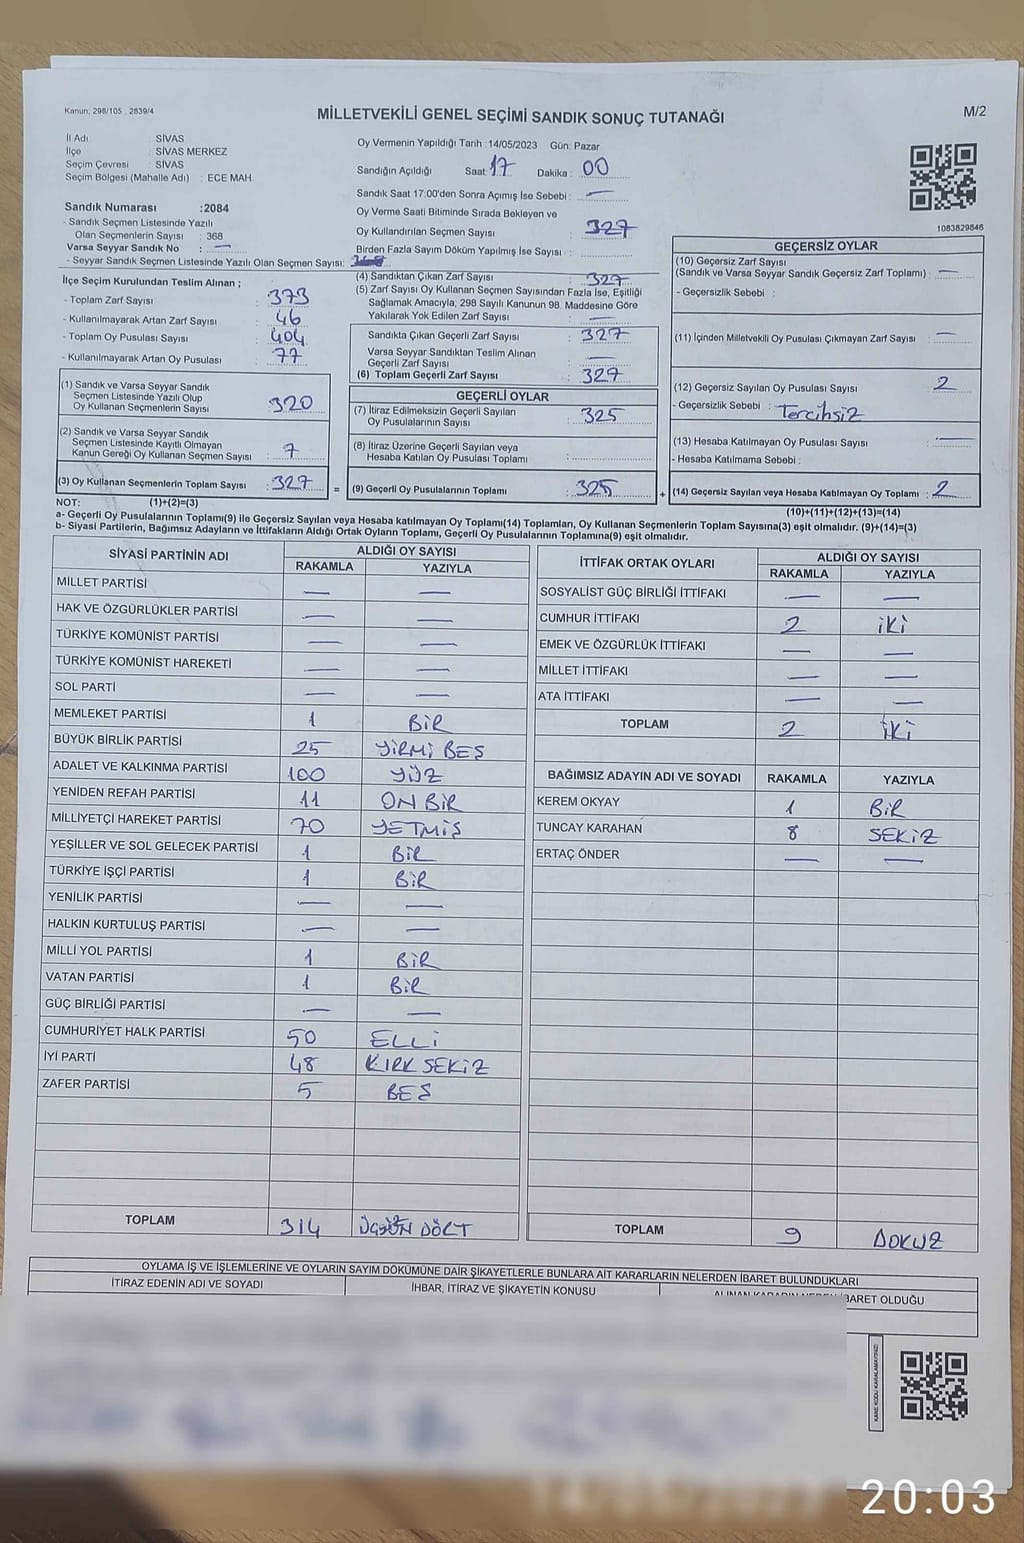 Kanun; 298/105 , 2839/4
MİLLETVEKİLİ GENEL SEÇİMİ SANDIK SONUÇ TUTANAĞI
M/2
İl Adı : SİVAS
İlçe : SİVAS MERKEZ
Seçim Çevresi : SİVAS
Seçim Bölgesi (Mahalle Adı) : ECE MAH.
Sandık Numarası :2084
- Sandık Seçmen Listesinde Yazılı
Olan Seçmenlerin Sayısı : 368
Varsa Seyyar Sandık No : —
- Seyyar Sandık Seçmen Listesinde Yazılı Olan Seçmen Sayısı:
Oy Vermenin Yapıldığı Tarih :14/05/2023 Gün: Pazar
Sandığın Açıldığı Saat: 17 Dakika : 00
Sandık Saat 17:00'den Sonra Açımış İse Sebebi : —
Oy Verme Saati Bitiminde Sırada Bekleyen ve
Oy Kullandırılan Seçmen Sayısı : 327
Birden Fazla Sayım Döküm Yapılmış İse Sayısı :
1083829846
İlçe Seçim Kurulundan Teslim Alınan ;
- Toplam Zarf Sayısı : 373
- Kullanılmayarak Artan Zarf Sayısı : 46
- Toplam Oy Pusulası Sayısı : 404
- Kullanılmayarak Artan Oy Pusulası : 77
(1) Sandık ve Varsa Seyyar Sandık
Seçmen Listesinde Yazılı Olup
Oy Kullanan Seçmenlerin Sayısı : 320
(2) Sandık ve Varsa Seyyar Sandık
Seçmen Listesinde Kayıtlı Olmayan
Kanun Gereği Oy Kullanan Seçmen Sayısı : 7
(3) Oy Kullanan Seçmenlerin Toplam Sayısı : 327
(4) Sandıktan Çıkan Zarf Sayısı : 327
(5) Zarf Sayısı Oy Kullanan Seçmen Sayısından Fazla İse, Eşitliği
Sağlamak Amacıyla; 298 Sayılı Kanunun 98. Maddesine Göre
Yakılarak Yok Edilen Zarf Sayısı : —
Sandıkta Çıkan Geçerli Zarf Sayısı : 327
Varsa Seyyar Sandıktan Teslim Alınan
Geçerli Zarf Sayısı : —
(6) Toplam Geçerli Zarf Sayısı : 327
GEÇERLİ OYLAR
(7) İtiraz Edilmeksizin Geçerli Sayılan
Oy Pusulalarının Sayısı : 325
(8) İtiraz Üzerine Geçerli Sayılan veya
Hesaba Katılan Oy Pusulası Toplamı :
= (9) Geçerli Oy Pusulalarının Toplamı : 325
GEÇERSİZ OYLAR
(10) Geçersiz Zarf Sayısı
(Sandık ve Varsa Seyyar Sandık Geçersiz Zarf Toplamı) : —
- Geçersizlik Sebebi :
(11) İçinden Milletvekili Oy Pusulası Çıkmayan Zarf Sayısı : —
(12) Geçersiz Sayılan Oy Pusulası Sayısı : 2
- Geçersizlik Sebebi : Tercihsiz
(13) Hesaba Katılmayan Oy Pusulası Sayısı : —
- Hesaba Katılmama Sebebi :
+ (14) Geçersiz Sayılan veya Hesaba Katılmayan Oy Toplamı : 2
NOT: (1)+(2)=(3)
(10)+(11)+(12)+(13)=(14)
a- Geçerli Oy Pusulalarının Toplamı(9) ile Geçersiz Sayılan veya Hesaba katılmayan Oy Toplamı(14) Toplamları, Oy Kullanan Seçmenlerin Toplam Sayısına(3) eşit olmalıdır. (9)+(14)=(3)
b- Siyasi Partilerin, Bağımsız Adayların ve İttifakların Aldığı Ortak Oyların Toplamı, Geçerli Oy Pusulalarının Toplamına(9) eşit olmalıdır.
SİYASİ PARTİNİN ADI ALDIĞI OY SAYISI
RAKAMLA YAZIYLA
MİLLET PARTİSİ — —
HAK VE ÖZGÜRLÜKLER PARTİSİ — —
TÜRKİYE KOMÜNİST PARTİSİ — —
TÜRKİYE KOMÜNİST HAREKETİ — —
SOL PARTİ — —
MEMLEKET PARTİSİ 1 BİR
BÜYÜK BİRLİK PARTİSİ 25 YİRMİ BEŞ
ADALET VE KALKINMA PARTİSİ 100 YÜZ
YENİDEN REFAH PARTİSİ 11 ON BİR
MİLLİYETÇİ HAREKET PARTİSİ 70 YETMİŞ
YEŞİLLER VE SOL GELECEK PARTİSİ 1 BİR
TÜRKİYE İŞÇİ PARTİSİ 1 BİR
YENİLİK PARTİSİ — —
HALKIN KURTULUŞ PARTİSİ — —
MİLLİ YOL PARTİSİ 1 BİR
VATAN PARTİSİ 1 BİR
GÜÇ BİRLİĞİ PARTİSİ — —
CUMHURİYET HALK PARTİSİ 50 ELLİ
İYİ PARTİ 48 KIRK SEKİZ
ZAFER PARTİSİ 5 BEŞ
TOPLAM 314 DÖRT
İTTİFAK ORTAK OYLARI ALDIĞI OY SAYISI
RAKAMLA YAZIYLA
SOSYALİST GÜÇ BİRLİĞİ İTTİFAKI — —
CUMHUR İTTİFAKI 2 İKİ
EMEK VE ÖZGÜRLÜK İTTİFAKI — —
MİLLET İTTİFAKI — —
ATA İTTİFAKI — —
TOPLAM 2 İKİ
BAĞIMSIZ ADAYIN ADI VE SOYADI RAKAMLA YAZIYLA
KEREM OKYAY 1 BİR
TUNCAY KARAHAN 8 SEKİZ
ERTAÇ ÖNDER — —
TOPLAM 9 DOKUZ
OYLAMA İŞ VE İŞLEMLERİNE VE OYLARIN SAYIM DÖKÜMÜNE DAİR ŞİKAYETLERLE BUNLARA AİT KARARLARIN NELERDEN İBARET BULUNDUKLARI
İTİRAZ EDENİN ADI VE SOYADI İHBAR, İTİRAZ VE ŞİKAYETİN KONUSU OLDUĞU
KARE KODU KARALAMAYINIZ!
20:03